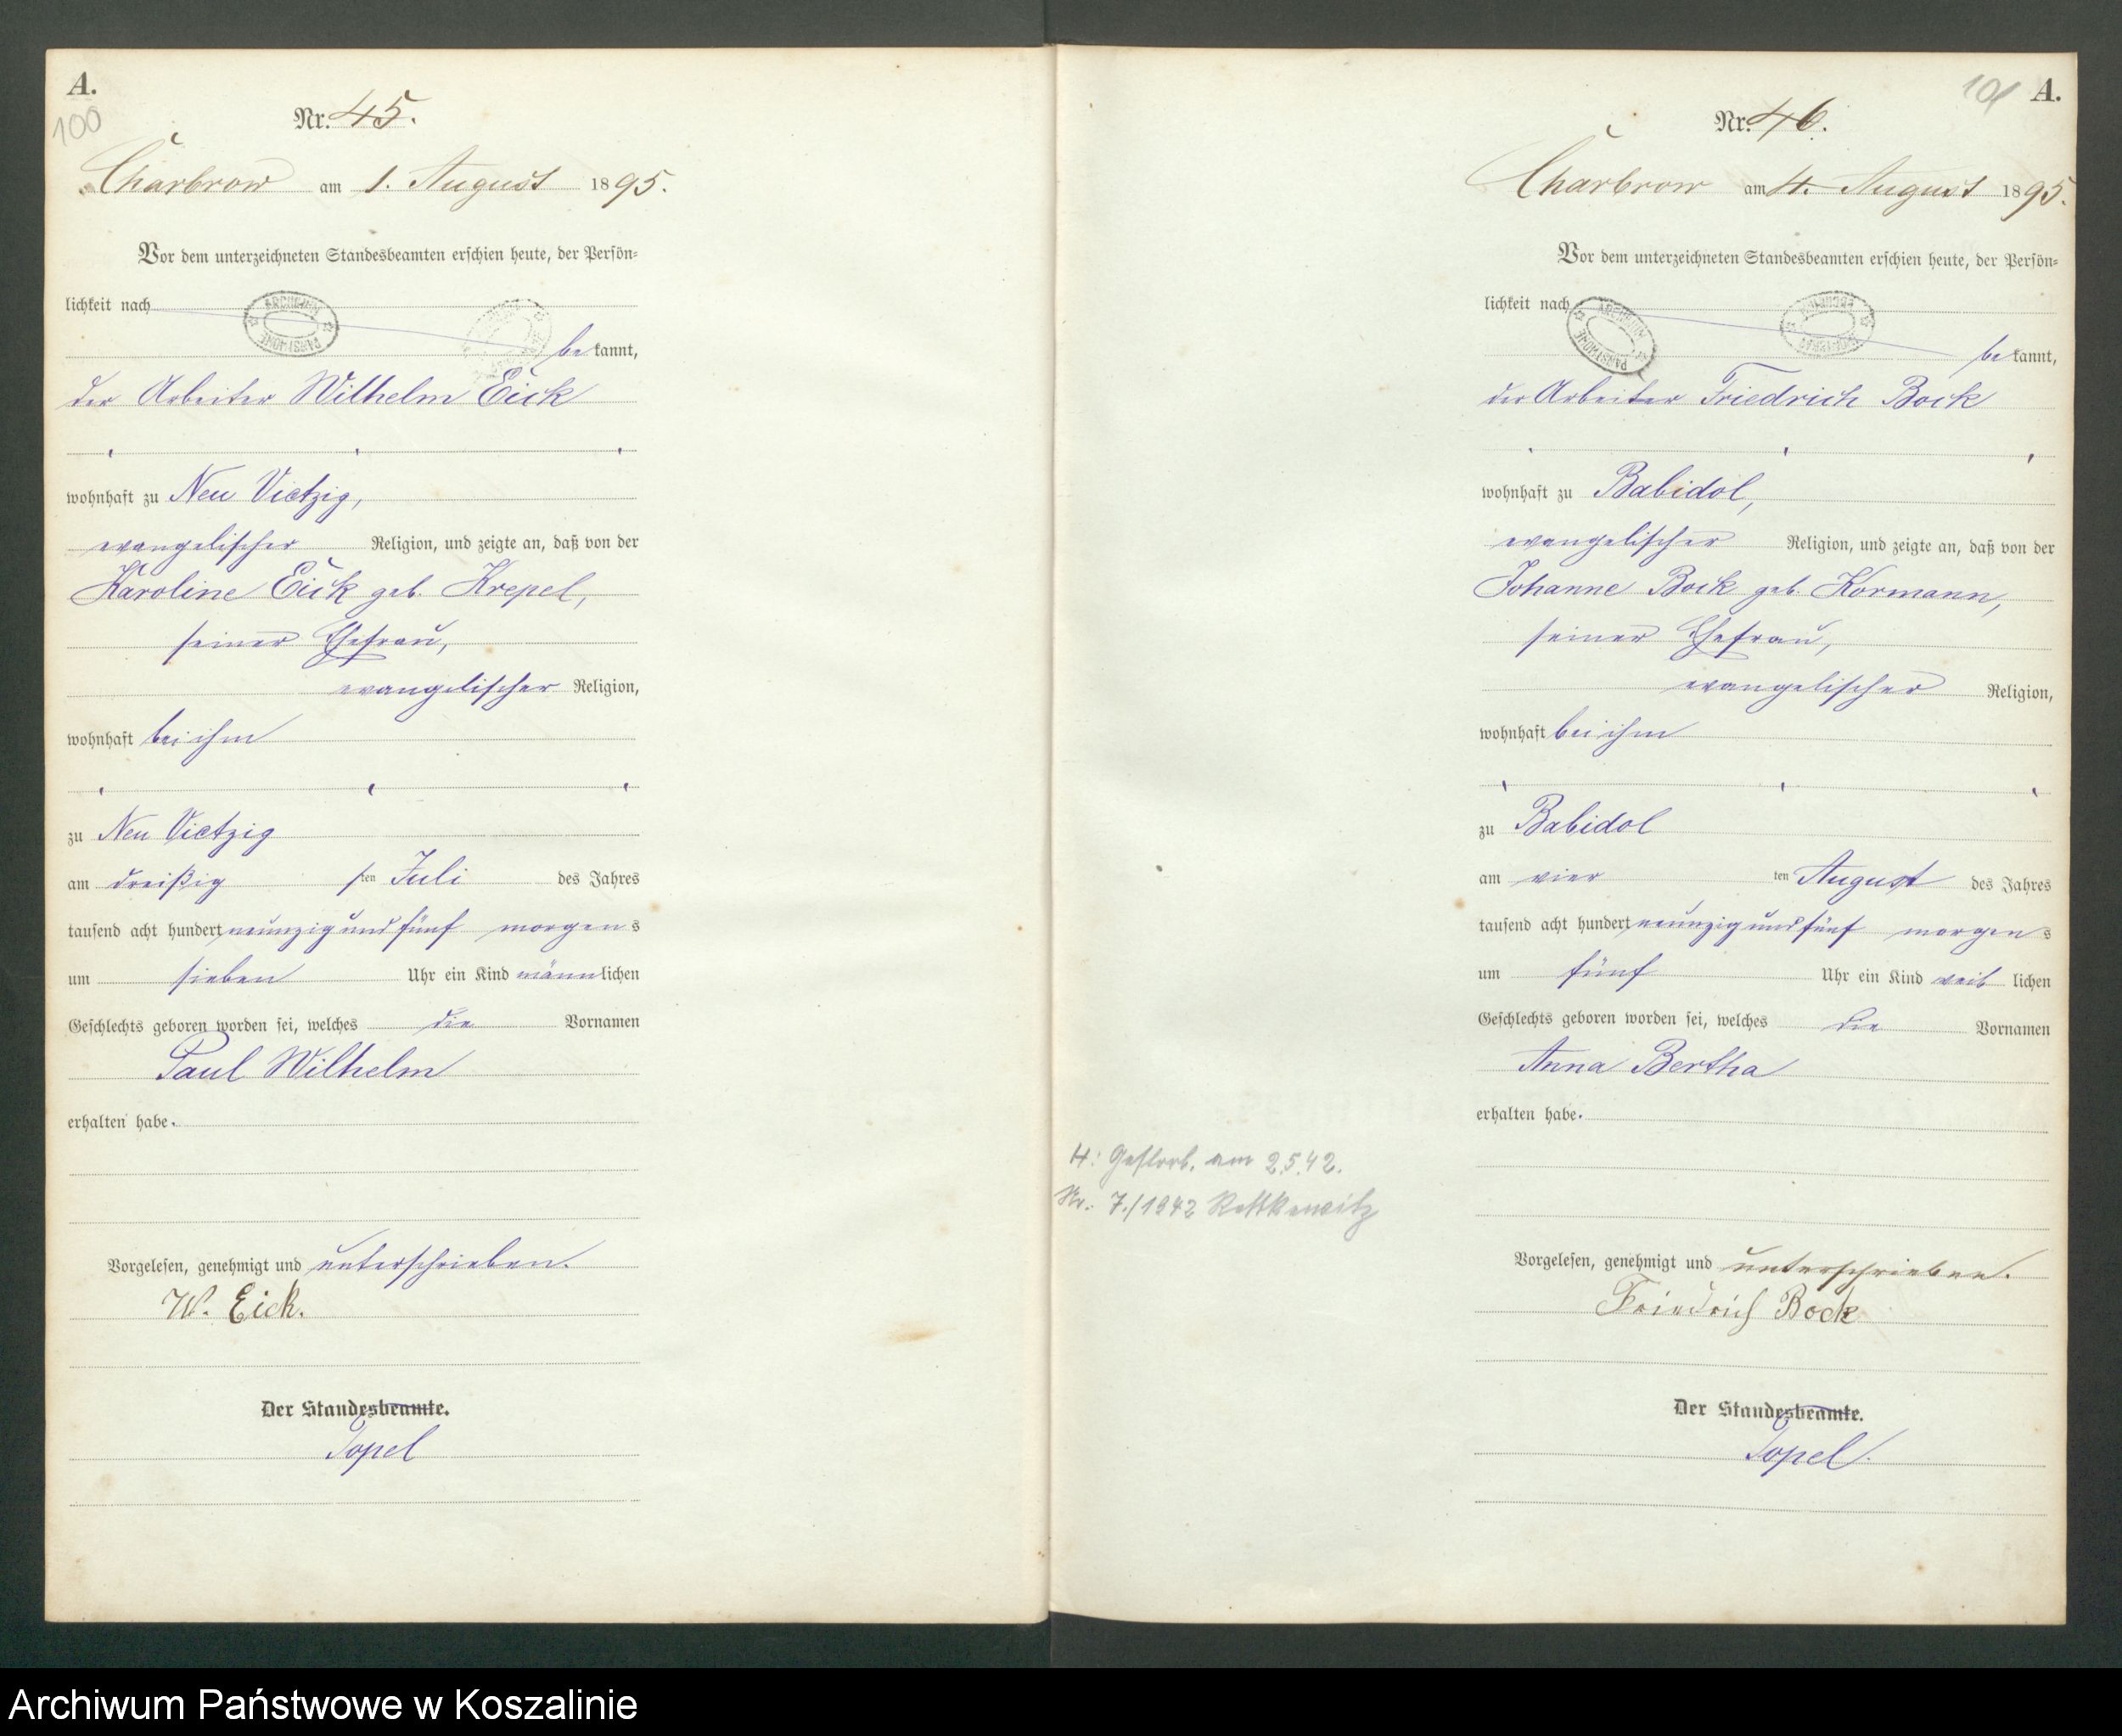 A.
100
Nr. 45.
Charbrow am 1. August 1895.
Vor dem unterzeichneten Standesbeamten erschien heute, der Persön-
lichkeit nach
ARCHIWUM PAŃSTWOWE
be kannt,
der Arbeiter Wilhelm Eick
wohnhaft zu Neu Vietzig,
evangelischer Religion, und zeigte an, daß von der
Karoline Eick geb. Krepel,
seiner Ehefrau,
evangelischer Religion,
wohnhaft bei ihm
zu Neu Vietzig
am dreißig sten Juli des Jahres
tausend acht hundert neunzig und fünf morgens
um sieben Uhr ein Kind männlichen
Geschlechts geboren worden sei, welches die Vornamen
Paul Wilhelm
erhalten habe.
Vorgelesen, genehmigt und unterschrieben.
W. Eick.
Der Standesbeamte.
Topel
101 A.
Nr. 46.
Charbrow am 4. August 1895.
Vor dem unterzeichneten Standesbeamten erschien heute, der Persön-
lichkeit nach
ARCHIWUM PAŃSTWOWE
be kannt,
der Arbeiter Friedrich Bock
wohnhaft zu Babidol,
evangelischer Religion, und zeigte an, daß von der
Johanne Bock geb. Kormann,
seiner Ehefrau,
evangelischer Religion,
wohnhaft bei ihm
zu Babidol
am vier ten August des Jahres
tausend acht hundert neunzig und fünf morgens
um fünf Uhr ein Kind weib lichen
Geschlechts geboren worden sei, welches die Vornamen
Anna Bertha
erhalten habe.
H: Gestorb. am 2.5.42.
Nr.: 7./1942 Rettkewitz
Vorgelesen, genehmigt und unterschrieben.
Friedrich Bock
Der Standesbeamte.
Topel.
Archiwum Państwowe w Koszalinie